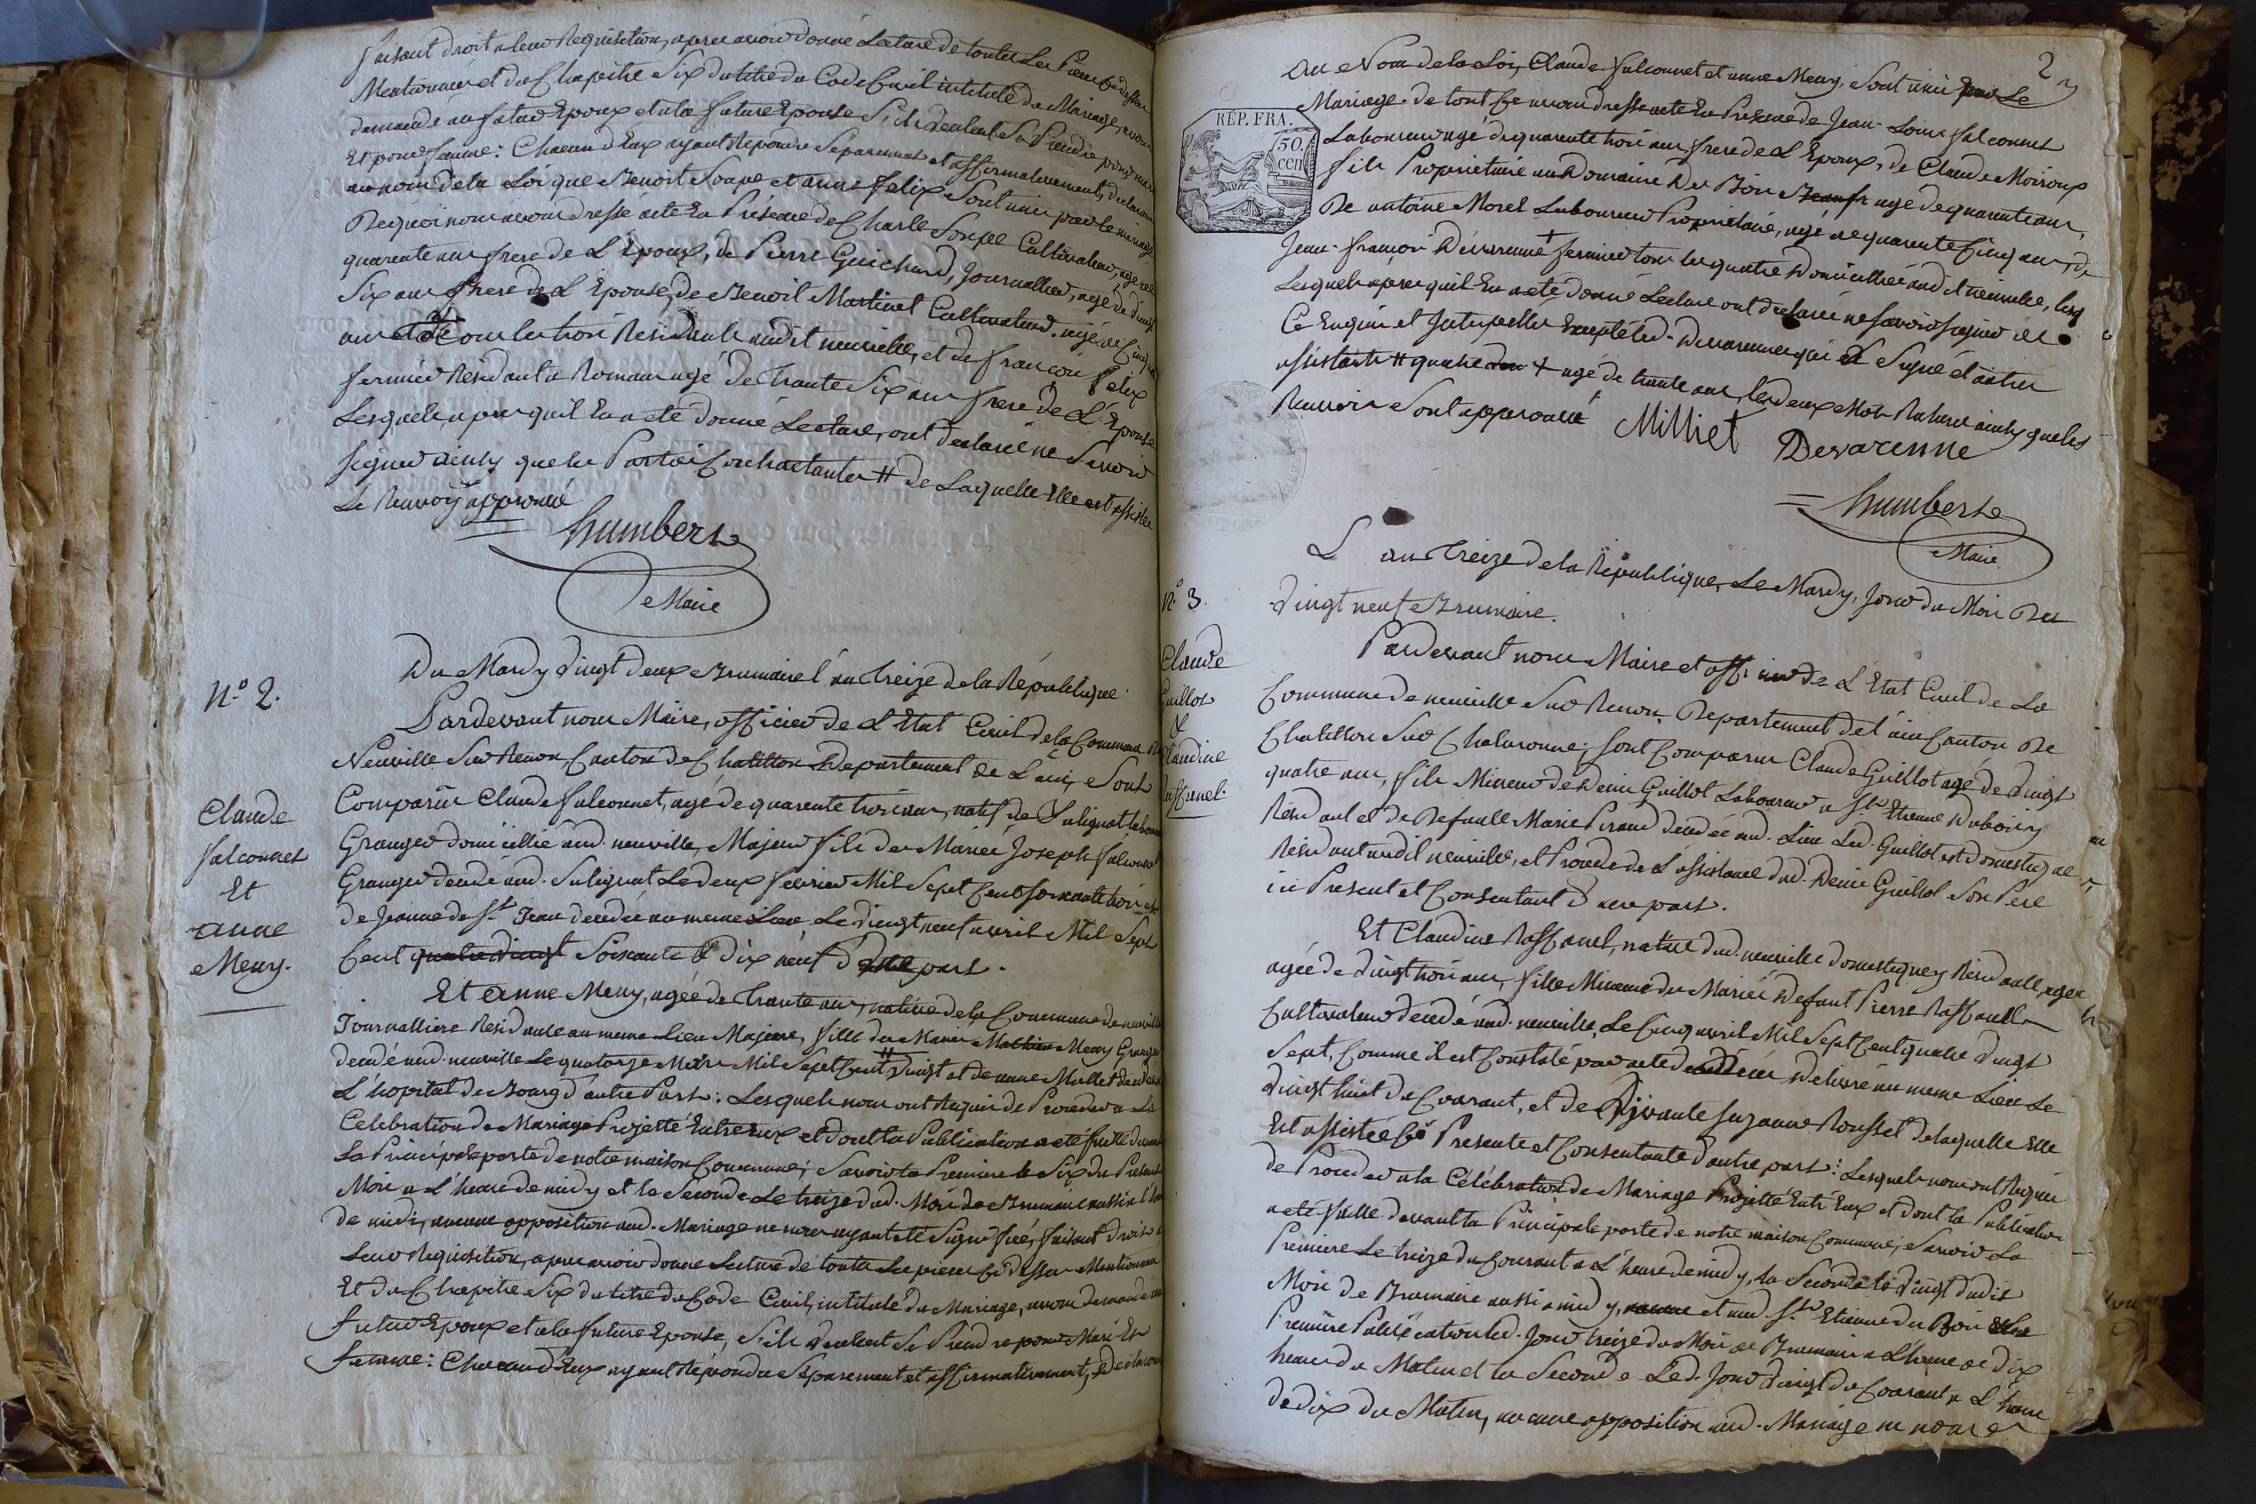 faisant droit a leur Requisition, apres avoir donné Lecture de toutes Les Pieces Cy dessus
Mentionnées et du Chapitre Six du titre du Code Civil intitulé du Mariage, avons
demandé au futur Epoux et a la future Epouse S'ils veulent Se Prendre pour mari
Et pour femme: Chacun d'Eux ayant Répondu Separement et affirmativement, declarons
au nom de la Loi que Benoit Soupe et anne felix Sont unis par le mariage
De quoi nous avons dressé acte En Présence de Charle Soupe Cultivateur, agé de
quarante ans frere de L'Epoux, de Pierre Guichard, Journallier, agé de vingt
Six ans frere de L'Epouse, de Benoit Martinet Cultivateur, agé de Cinq
ans tous trois Residants audit neuville, et de françois felix
fermier Résidant a Romans agé de trante Six ans frere de L'Epouse
Lesquels apres qu'il En a eté donné Lecture, ont declaré ne Savoir
Signer ainsy que les Parties Contractantes # de Laquelle Elle est assistée
Le Renvoy approuvé
humbert
Le Maire
N.º 2.
Claude
falconnet
Et
anne
Meny.
Du Mardy vingt deux Brumaire l'an treize de la République
Pardevant nous Maire, officier de L'Etat Civil de la Commune de
Neuville Sur Renon, Canton de Chatillon Departement de L'ain, Sont
Comparus Claude falconnet, agé de quarante trois ans, natif de Sulignat
Granger domicillié aud. neuville, Majeur fils des Mariés Joseph falconnet
Granger decedé aud. Sulignat Le deux fevrier Mil Sept Cent soixante trois et
de Jeanne de St Jean decedée au meme Lieu, Le vingt neuf avril Mil Sept
Cent quatre vingt Soixante & dix neuf d'une part.
Et anne Meny, agée de trante ans, native de la Commune de neuville
Journalliere Residante au meme Lieu Majeure, fille des Mariés Mathieu Meny Granger
decedé aud. neuville Le quatorze Mars Mil Sept Cent # vingt et de anne Mullet
L'hopital de Bourg d'autre Part: Lesquels nous ont Requis de Proceder a La
Celebration du Mariage Projetté Entre Eux et dont la Publication a eté faitte devant
La Principale porte de notre maison Commune; Savoir la Premiere le Six du Present
Mois a L'heure de midy et la Seconde Le treize dud. Mois de Brumaire aussi a l'heure
de midi, aucune opposition aud. Mariage ne nous ayant eté Signifiée, faisant droit a
Leur Requisition, apres avoir donné Lecture de toutes Les pieces Cy dessus Mentionnées
Et du Chapitre Six du titre du Code Civil, intitulé du Mariage, avons demandé au
futur Epoux et a la future Epouse, S'ils veulent Se Prendre pour Mari Et
femme: Chacun d'Eux ayant Répondu Séparement et affirmativement, declarons
2
RÉP. FRA.
50.
cen
Au Nom de la Loi, Claude falconnet et anne Meny, Sont unis par Le
Mariage. de tout Ce avons dressé acte En Présence de Jean-Louis falconnet
Laboureur agé de quarante trois ans frere de L'Epoux, de Claude Moiroux
fils Propriétaire au Domaine Des Bois agé de quarante ans,
De antoine Morel Laboureur Propriétaire, agé de quarante Cinq ans, de
Jean-françois Devarenne + fermier tous les quatre Domicilliés audit neuville, Les
Lesquels apres quil En a eté donné Lecture ont declaré ne Savoir Signer de
Ce Enquis et Interpellés Excepté led. Devarenne qui a Signé et autres
assistants # quatre + agé de trante ans, les deux Mots Raturés ainsy que les
Renvois Sont approuvés
Milliet
Devarenne
humbert
Maire
N.º 3.
Claude
Guillot
&
Claudine
L'an treize de la République, Le Mardy, Jour du Mois De
vingt neuf Brumaire.
Pardevant nous Maire et officier de L'Etat Civil de La
Commune de neuville Sur Renon, Departement de l'ain Canton De
Chatillon Sur Chalaronne; Sont Comparus Claude Guillot agé de vingt
quatre ans, fils Mineur de Denis Guillot Laboureur a St Etienne Dubois y
Résidant et de Defunte Marie Piraud decedée aud. Lieu Led. Guillot est domestique
Résidant audit neuville, et Procede de L'assistance dud. Denis Guillot Son Pere
ici Present et Consentant d'une part.
Et Claudine Raffanel, native dud. neuville domestique y Residante,
agée de vingt trois ans, fille Mineure des Mariés Defunt Pierre Raffanel
Cultivateur decedé aud. neuville, Le Cinq avril Mil Sept Cent quatre vingt
Sept, Comme il est Constaté par acte de decès Délivré au meme Lieu Le
vingt huit du Courant, et de vivante Suzanne Rousset de laquelle Elle
Est assistée Cy Presente et Consentante d'autre part: Lesquels nous ont Requis
de Proceder a la Célébration de Mariage Projetté Entr'Eux et dont la Publication
a eté faitte devant la Principale porte de notre maison Commune; Savoir La
Premiere Le treize du Courant a L'heure de midy, La Seconde le vingt dudit
Mois de Brumaire aussi a midy, et aud. St Etienne du Bois
Premiere Publication led. Jour treize du Mois de Brumaire a L'heure de dix
heures du Matin et la Seconde Led. Jour vingt du Courant a L'heure
de dix du Matin, aucune opposition aud. Mariage ne nous